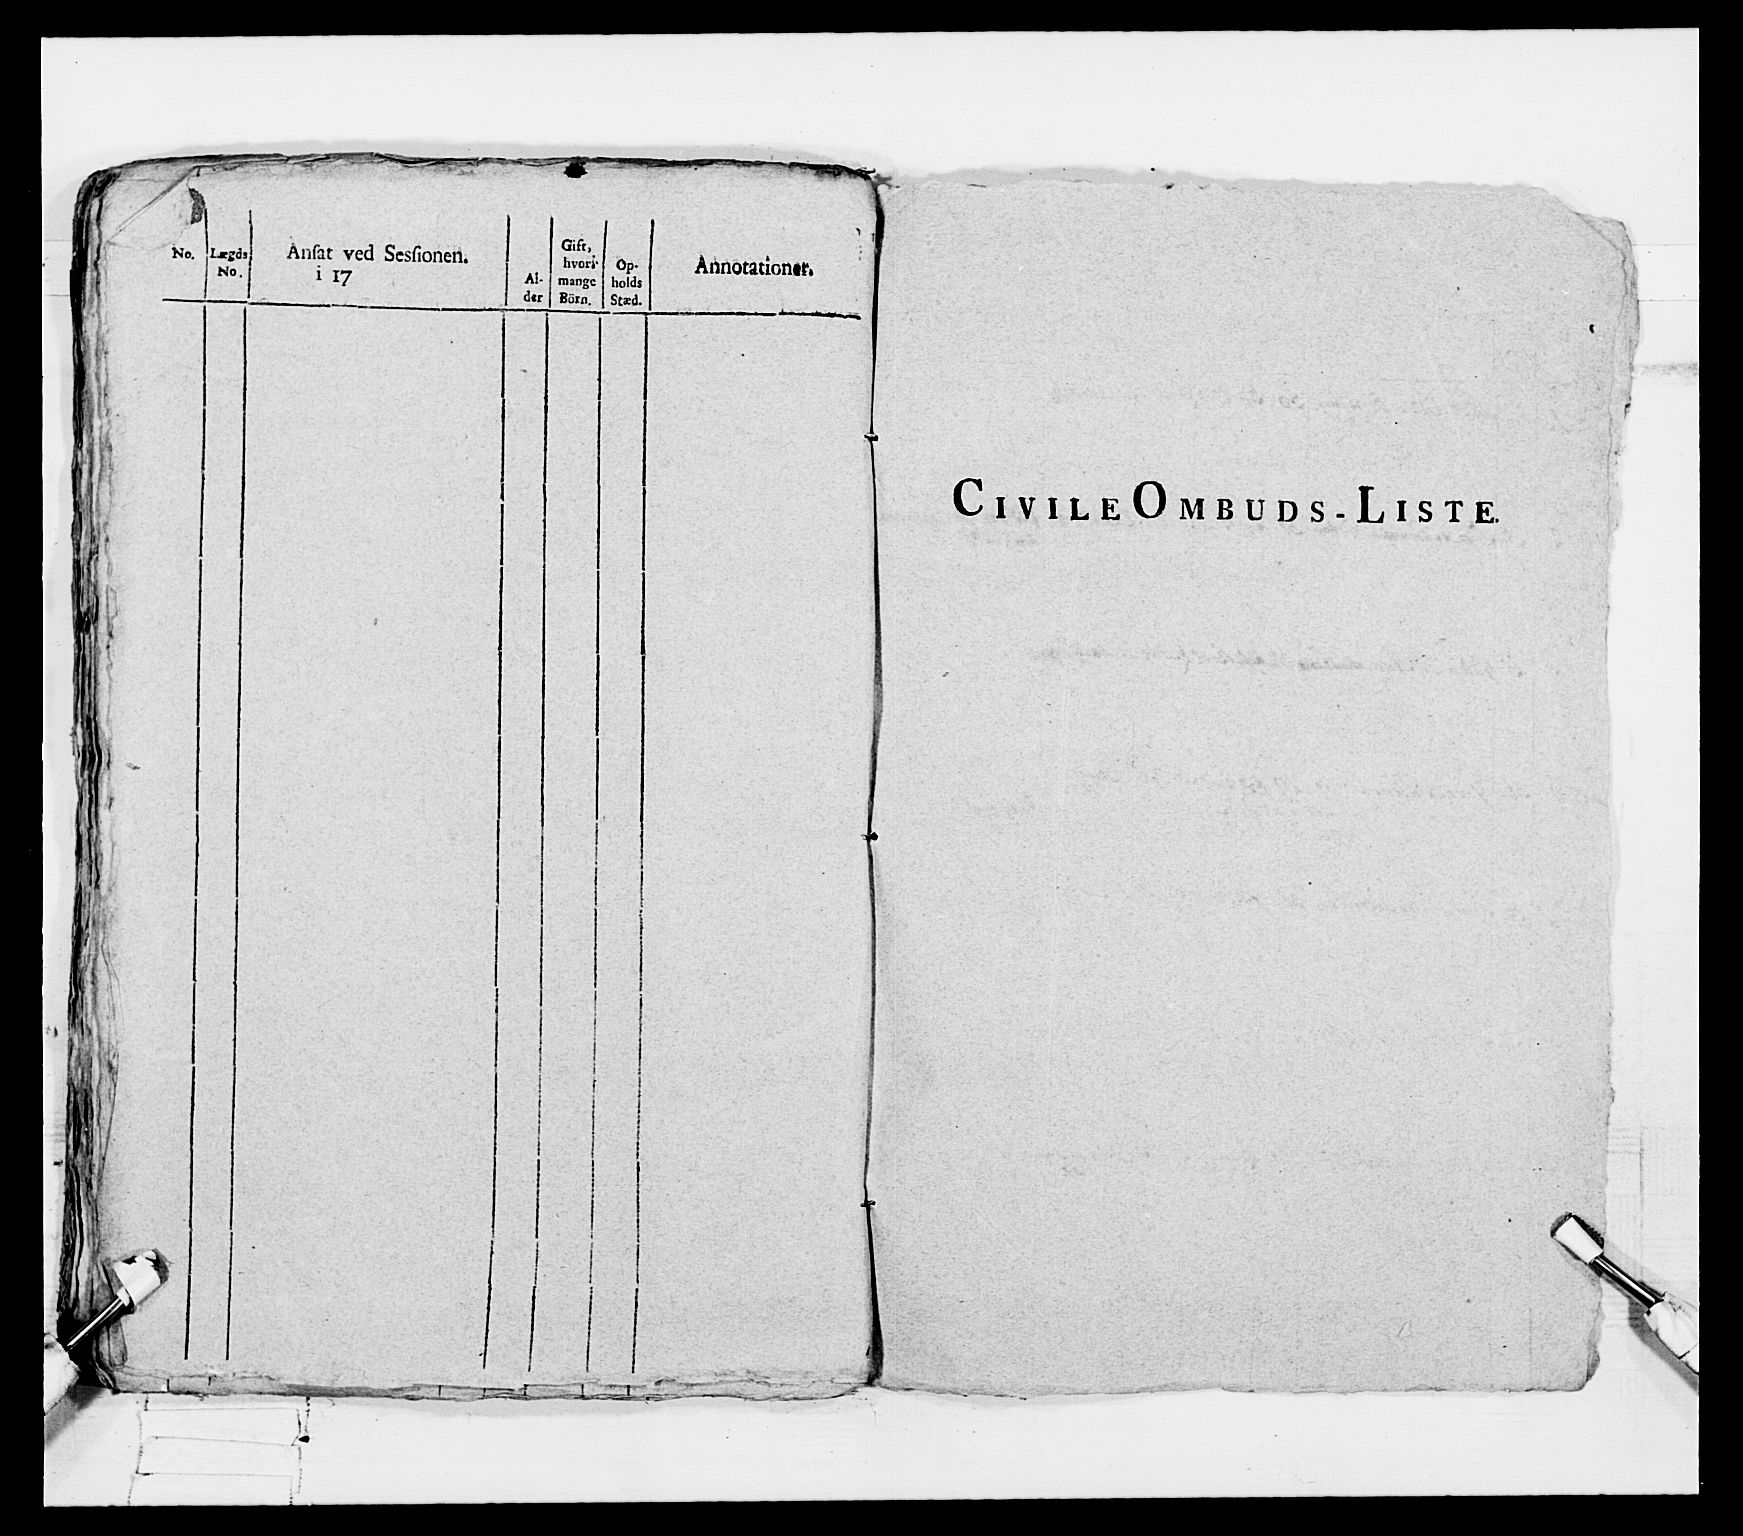 No.
Lægds
No.
Anſat ved Sesſionen.
i 17
Al-
der
Gift,
hvori-
mange
Börn.
Op-
holds
Stæd.
Annotationer.
CIVILE OMBUDS-LISTE.